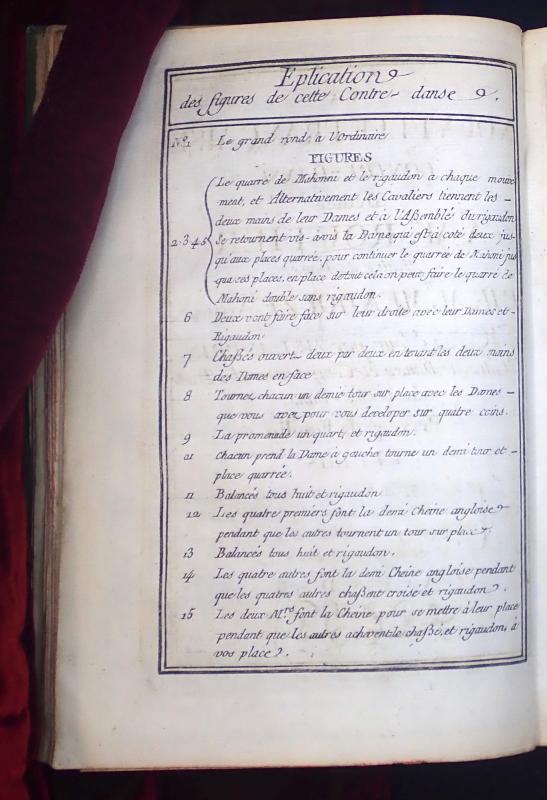 Eplication
des figures de cette Contre-danse.
N.º1 Le grand rond, a l'Ordinaire
FIGURES
Le quarré de Mahonni et le rigaudon à chaque mouve
ment, et Alternativement les Cavaliers tiennent les -
deux mains de leur Dames et à l'Aßemblé du rigaudon
2.3.4.5 Se retournent vis-avis la Dame qui est à coté deux jus-
qu'aux places quarrée, pour continuer le quarrée de Mahoni jus
qua ces places, en place de tout cela on peut faire le quarré de
Mahoni double sans rigaudon.
6 Deux vont faire face sur leur droite avec leur Dames et -
Rigaudon
7 Chaßés ouvert deux par deux en tenant les deux mains
des Dames en face
8 Tournez chacun un demie tour sur place avec les Dames -
que vous avez pour vous developer sur quatre coins.
9 La promenade un quart, et rigaudon.
01 chacun prend la Dame à gauche tourne un demi tour et -
place quarrée.
11 Balancés tous huit et rigaudon
12 Les quatre premiers font la demi Cheine angloise
pendant que les autres tournent un tour sur place.
13 Balancés tous huit et rigaudon.
14 Les quatre autres font la demi Cheine angloise pendant
que les quatres autres chaßent croisé et rigaudon.
15 Les deux M.rs font la Cheine pour se mettre à leur place
pendant que les autres achevent le chaßé, et rigaudon, à
vos place.